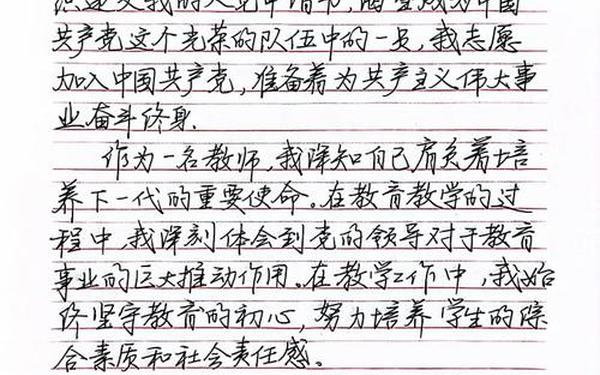 递交我的入党申请书,渴望成为中国
共产党这个光荣的队伍中的一员,我志愿
加入中国共产党,准备着为共产主义伟大事
业奋斗终身.
作为一名教师,我深知自己肩负着培
养下一代的重要使命。在教育教学的过
程中,我深刻体会到党的领导对于教育
事业的巨大推动作用。在教学工作中,我始
终坚守教育的初心,努力培养学生的综
合素质和社会责任感。